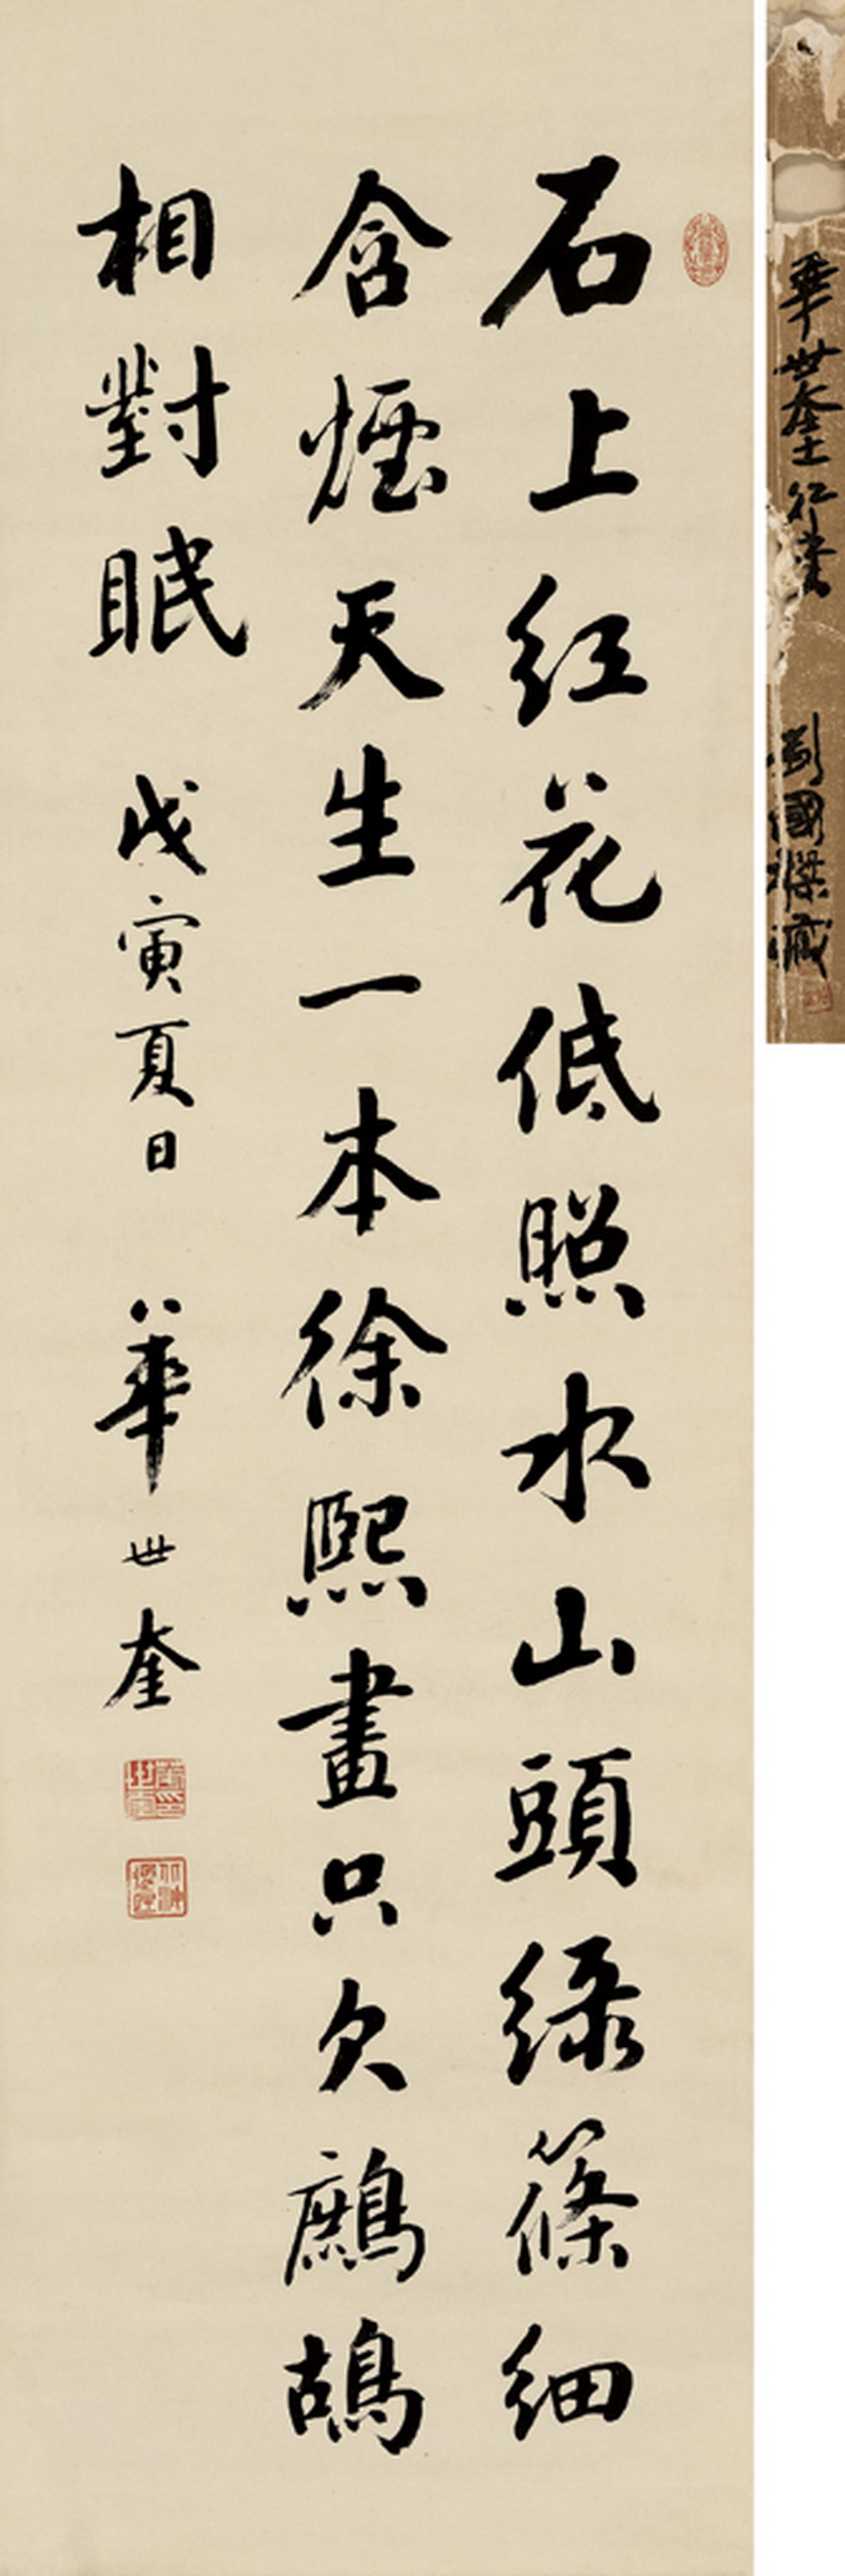 石上红花低照水山頭緑篠細
含煙天生一本徐熙畫只欠鷓鴣
相對眠 戊寅夏日 華世奎
華世奎行書 劉國傑藏